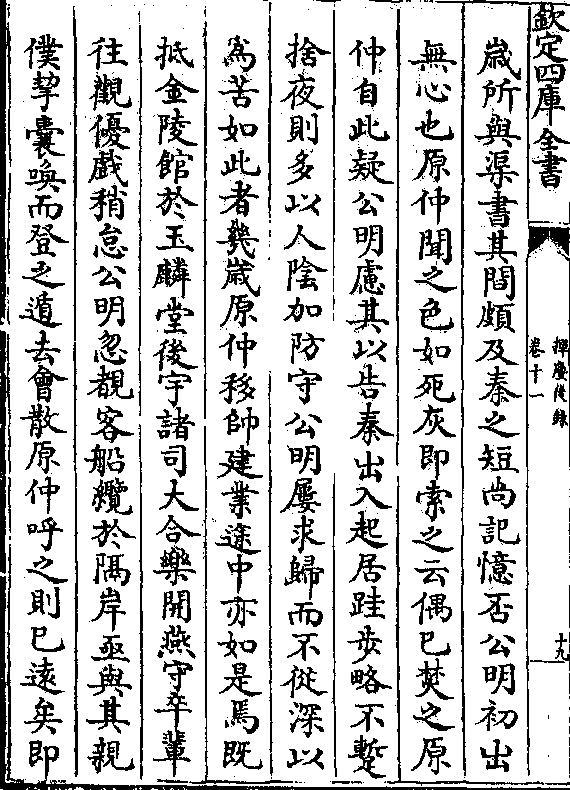 欽定四庫全書
揮麈後録
卷十一
十九
歳所與渠書其間頗及秦之短尚記憶否公明初出
無心也原仲聞之色如死灰即索之云偶已焚之原
仲自此疑公明慮其以告秦出入起居跬步略不蹔
捨夜則多以人陰加防守公明屢求歸而不從深以
為苦如此者幾歳原仲移帥建業途中亦如是焉既
抵金陵館於玉麟堂後宇諸司大合樂開燕守卒輩
往觀優戲稍怠公明忽覩客船纜於隔岸亟與其親
僕挈囊喚而登之遁去會散原仲呼之則已遠矣即